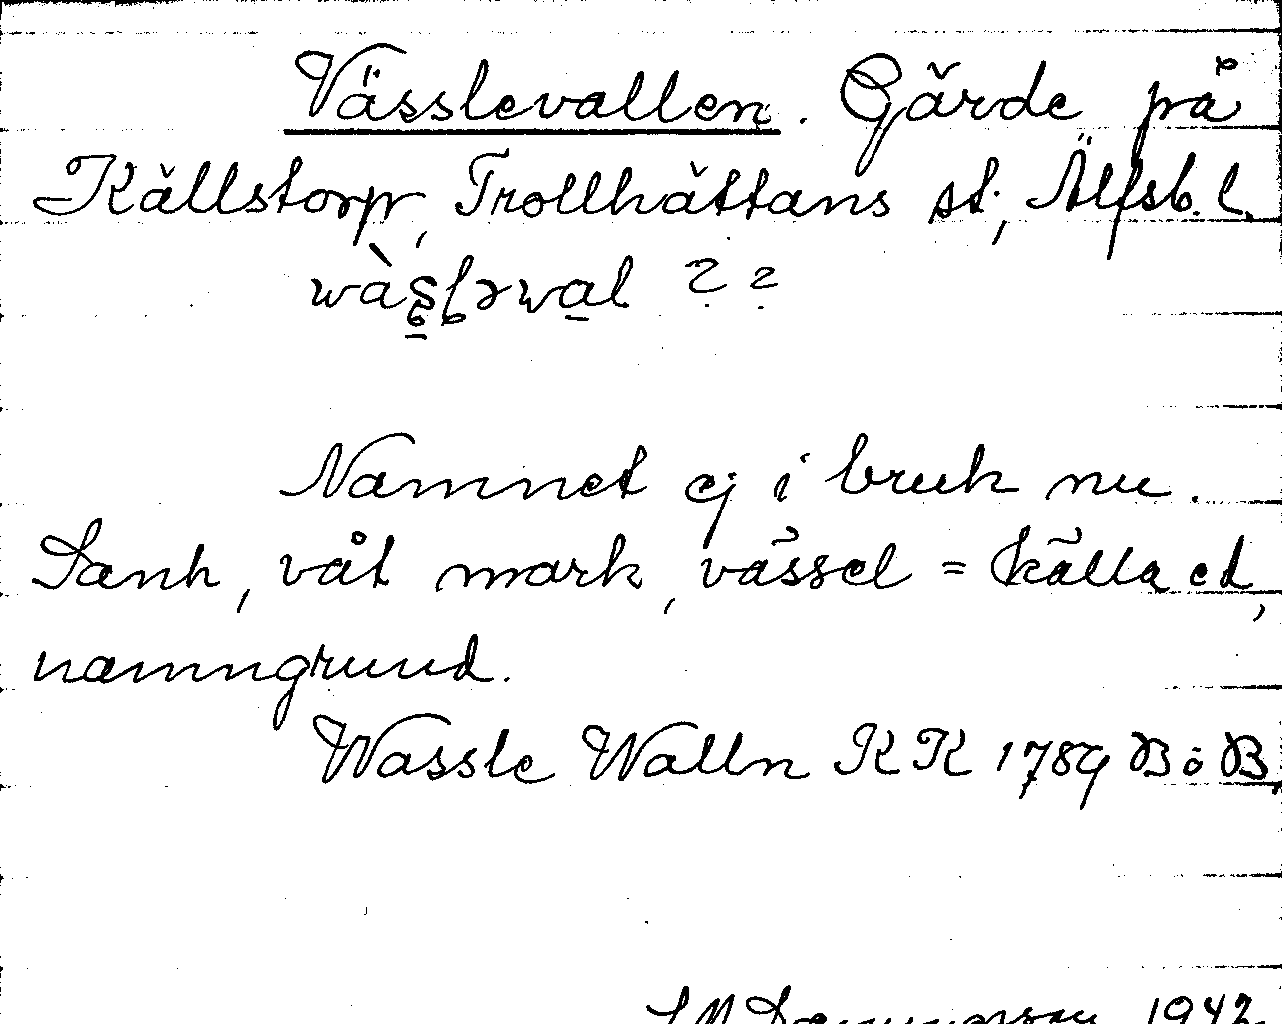 Vässlevallen. Gärde på
Källstorp, Trollhättans st., Älfsb. l.
Namnet ej i bruk nu.
Sank, våt mark, vässel = källa ed,
namngrund.
Wassle Walln KK 1789 BöB
1942